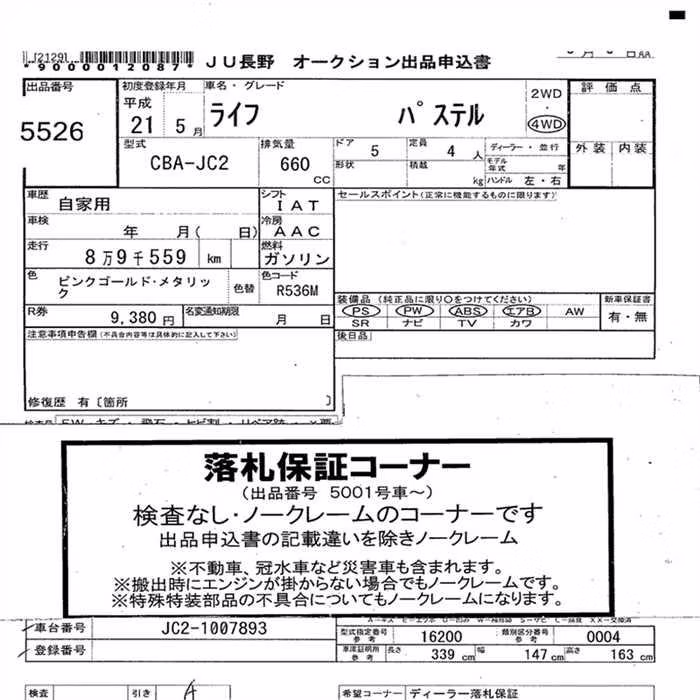 [2129]
*9000012087* JU長野 オークション出品申込書
出品番号 初度登録年月 車名・グレード 2WD・4WD 評価点
5526 平成 21 5月 ライフ パステル
型式 排気量 ドア 5 定員 4人 ディーラー・並行 外装 内装
CBA-JC2 660 CC 形状 積載 kg モデル年式 年 ハンドル 左・右
車歴 自家用 シフト IAT セールスポイント(正常に機能するものに限ります)
車検 年 月( 日) 冷房 AAC
走行 8万9千559 km 燃料 ガソリン
色 ピンクゴールド・メタリック 色替 色コード R536M
R券 9,380円 名変通知期限 月 日
装備品(純正品に限り○をつけてください) 新車保証書
PS PW ABS エアB AW 有・無
SR ナビ TV カワ
注意事項申告欄(不具合内容等は具体的に記入して下さい) 後日品
修復歴 有〔箇所 〕
落札保証コーナー
(出品番号 5001号車~)
検査なし・ノークレームのコーナーです
出品申込書の記載違いを除きノークレーム
※不動車、冠水車など災害車も含まれます。
※搬出時にエンジンが掛からない場合でもノークレームです。
※特殊特装部品の不具合についてもノークレームになります。
車台番号 JC2-1007893 型式指定番号 参考 16200 類別区分番号 参考 0004
登録番号 車庫証明所 参考 長さ 339 cm 幅 147 cm 高さ 163 cm
検査 引き 希望コーナー ディーラー落札保証